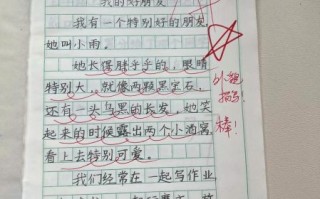 我的好朋友
我有一个特别好的朋友,
她叫小雨。
她长得胖乎乎的,眼睛
特别大。就像两颗黑宝石,
还有一头乌黑的长发,她笑
起来的时候露出两个小酒窝,
看上去特别可爱。
我们经常在一起写作业,
棒!